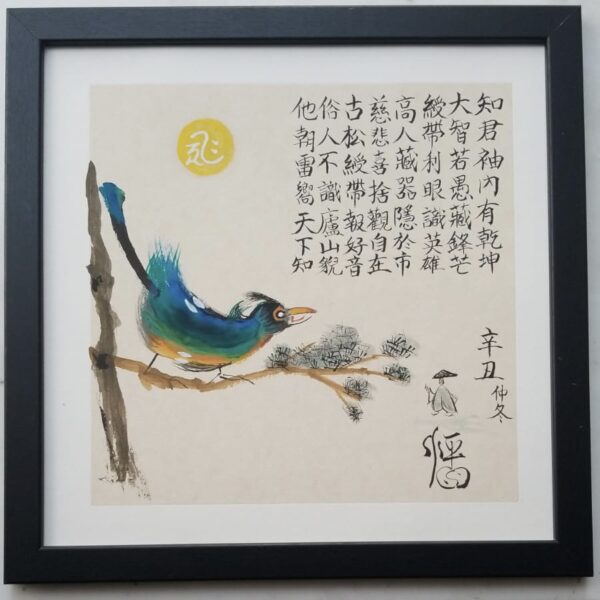 知君袖內有乾坤
大智若愚藏鋒芒
綬帶利眼識英雄
高人藏器隱於市
慈悲喜捨觀自在
古松綬帶報好音
俗人不識廬山貌
他朝雷響天下知
辛丑
仲冬